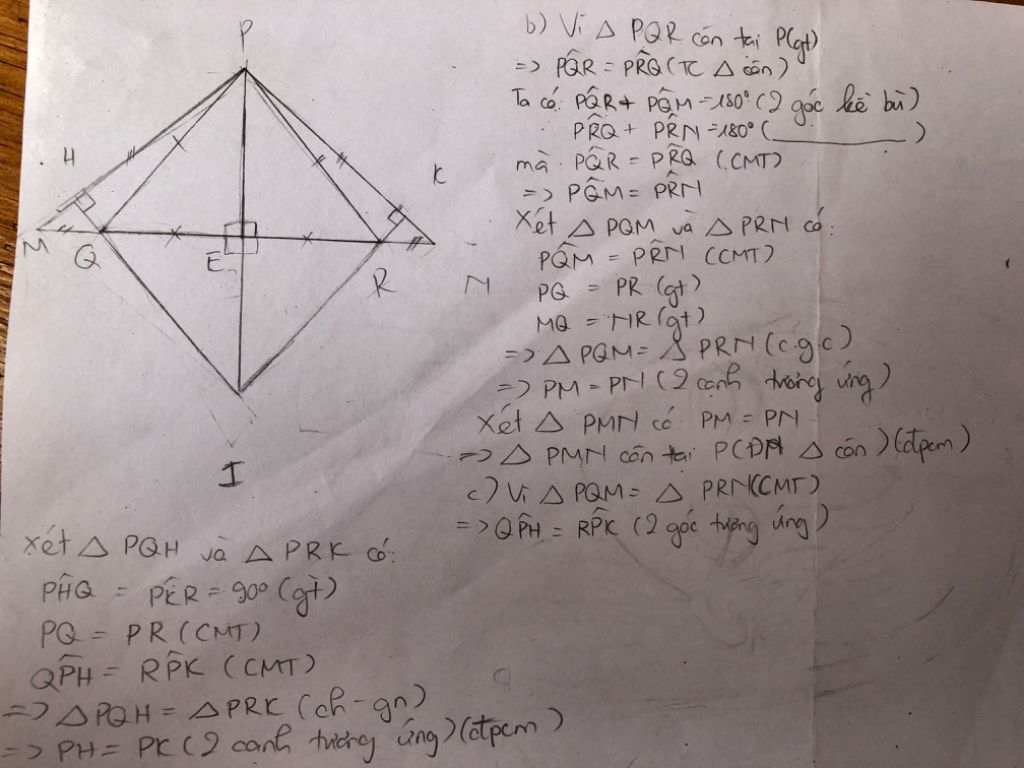 P
H
K
M
Q
E
R
N
I
b) Vì △ PQR cân tại P(gt)
=> PQ̂R = PR̂Q (TC △ cân)
Ta có: PQ̂R + PQ̂M = 180° (2 góc kề bù)
PR̂Q + PR̂N = 180° (__________)
mà PQ̂R = PR̂Q (CMT)
=> PQ̂M = PR̂N
Xét △ PQM và △ PRN có:
PQ̂M = PR̂N (CMT)
PQ = PR (gt)
MQ = NR (gt)
=> △ PQM = △ PRN (c.g.c)
=> PM = PN (2 cạnh tương ứng)
Xét △ PMN có: PM = PN
=> △ PMN cân tại P(ĐN △ cân)(đpcm)
c) Vì △ PQM = △ PRN(CMT)
=> QP̂H = RP̂K (2 góc tương ứng)
Xét △ PQH và △ PRK có:
PĤQ = PÊR = 90° (gt)
PQ = PR (CMT)
QP̂H = RP̂K (CMT)
=> △ PQH = △ PRK (ch - gn)
=> PH = PK (2 cạnh tương ứng)(đpcm)